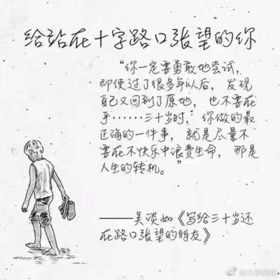 给站在十字路口张望的你
“你一定要勇敢地尝试，
即使过了很多年以后，发现
自己又回到了原地，也不要在
乎……三十岁时，你做的最
正确的一件事，就是尽量不
要在不快乐中浪费生命，那是
人生的转机。”
——吴淡如《写给三十岁还
在路口张望的朋友》